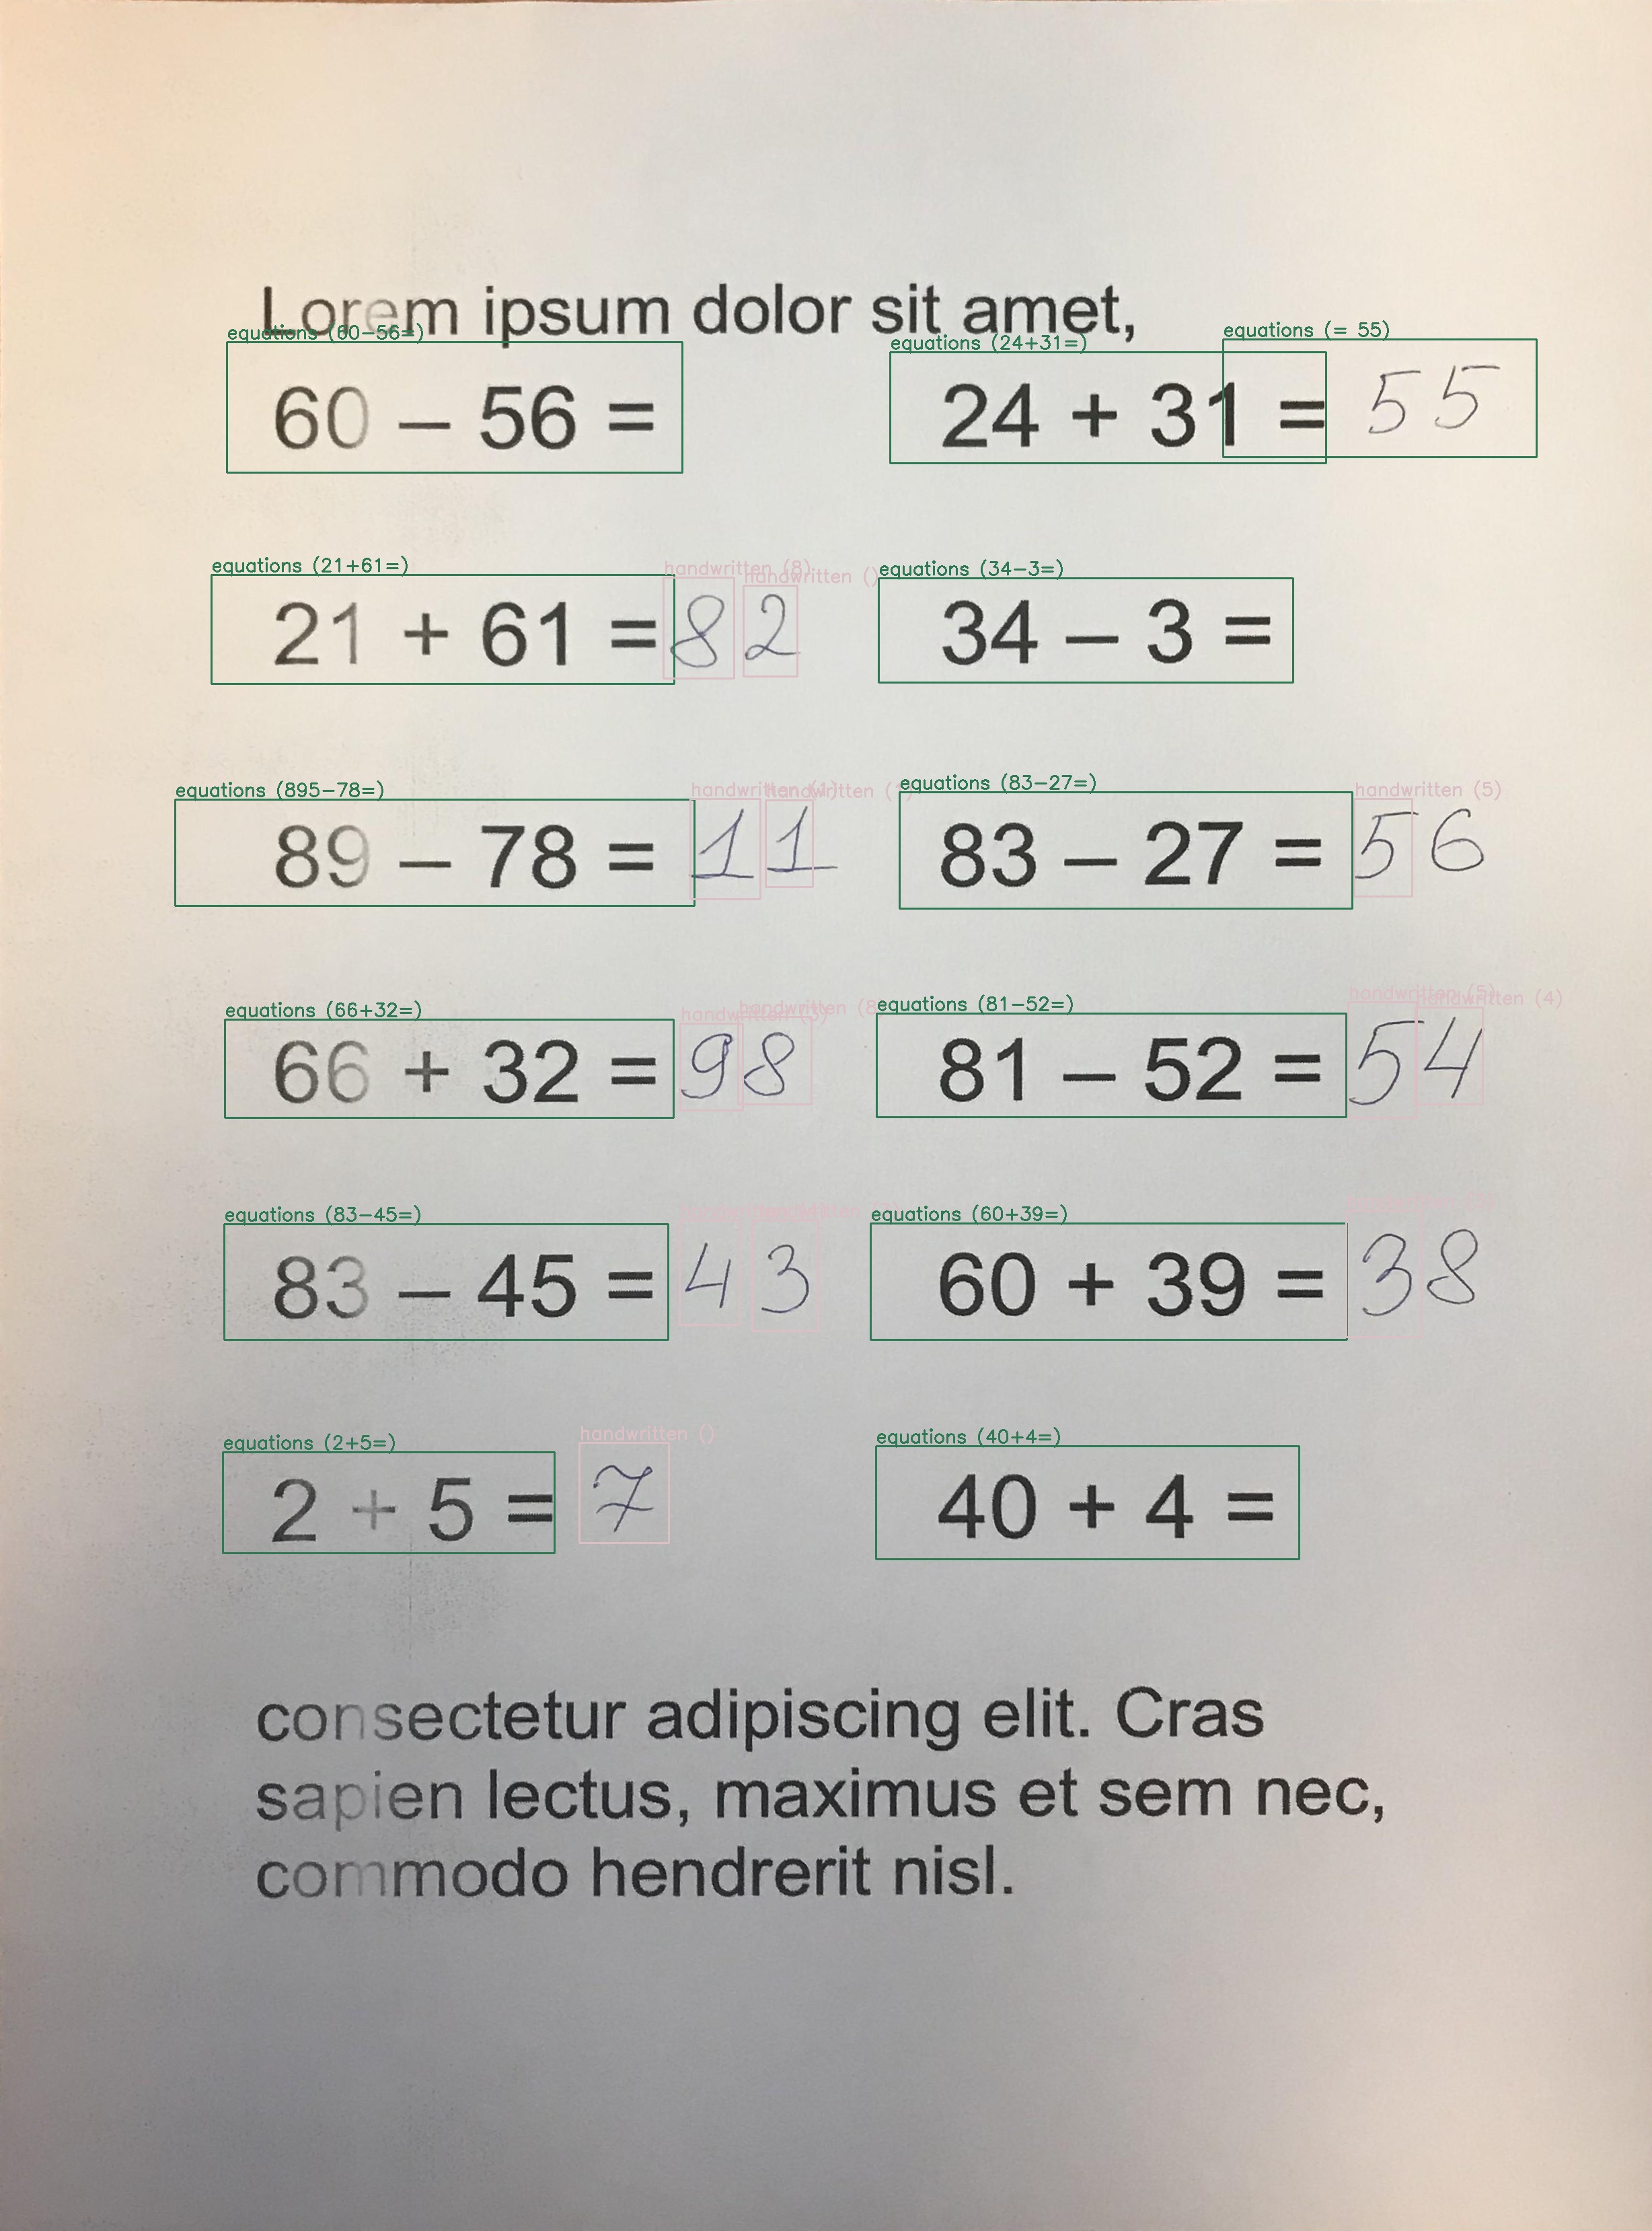 Lorem ipsum dolor sit amet,
equations (60-56=) equations (24+31=) equations (= 55)
60 – 56 = 24 + 31 = 55
equations (21+61=) handwritten (8) handwritten () equations (34-3=)
21 + 61 = 82 34 – 3 =
equations (895-78=) handwritten (1) handwritten ( equations (83-27=) handwritten (5)
89 – 78 = 11 83 – 27 = 56
equations (66+32=) handwritten handwritten (8 equations (81-52=) handwritten (5) handwritten (4)
66 + 32 = 98 81 – 52 = 54
equations (83-45=) equations (60+39=)
83 – 45 = 43 60 + 39 = 38
equations (2+5=) handwritten () equations (40+4=)
2 + 5 = 7 40 + 4 =
consectetur adipiscing elit. Cras
sapien lectus, maximus et sem nec,
commodo hendrerit nisl.